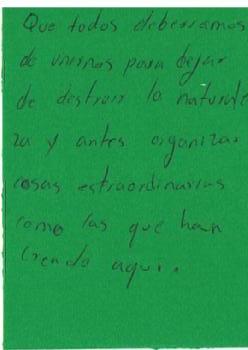 Que todos deberiamos
de unirnos para dejar
de destruir la naturale
za y antes organizar
cosas extraordinarias
como las que han
creado aqui.